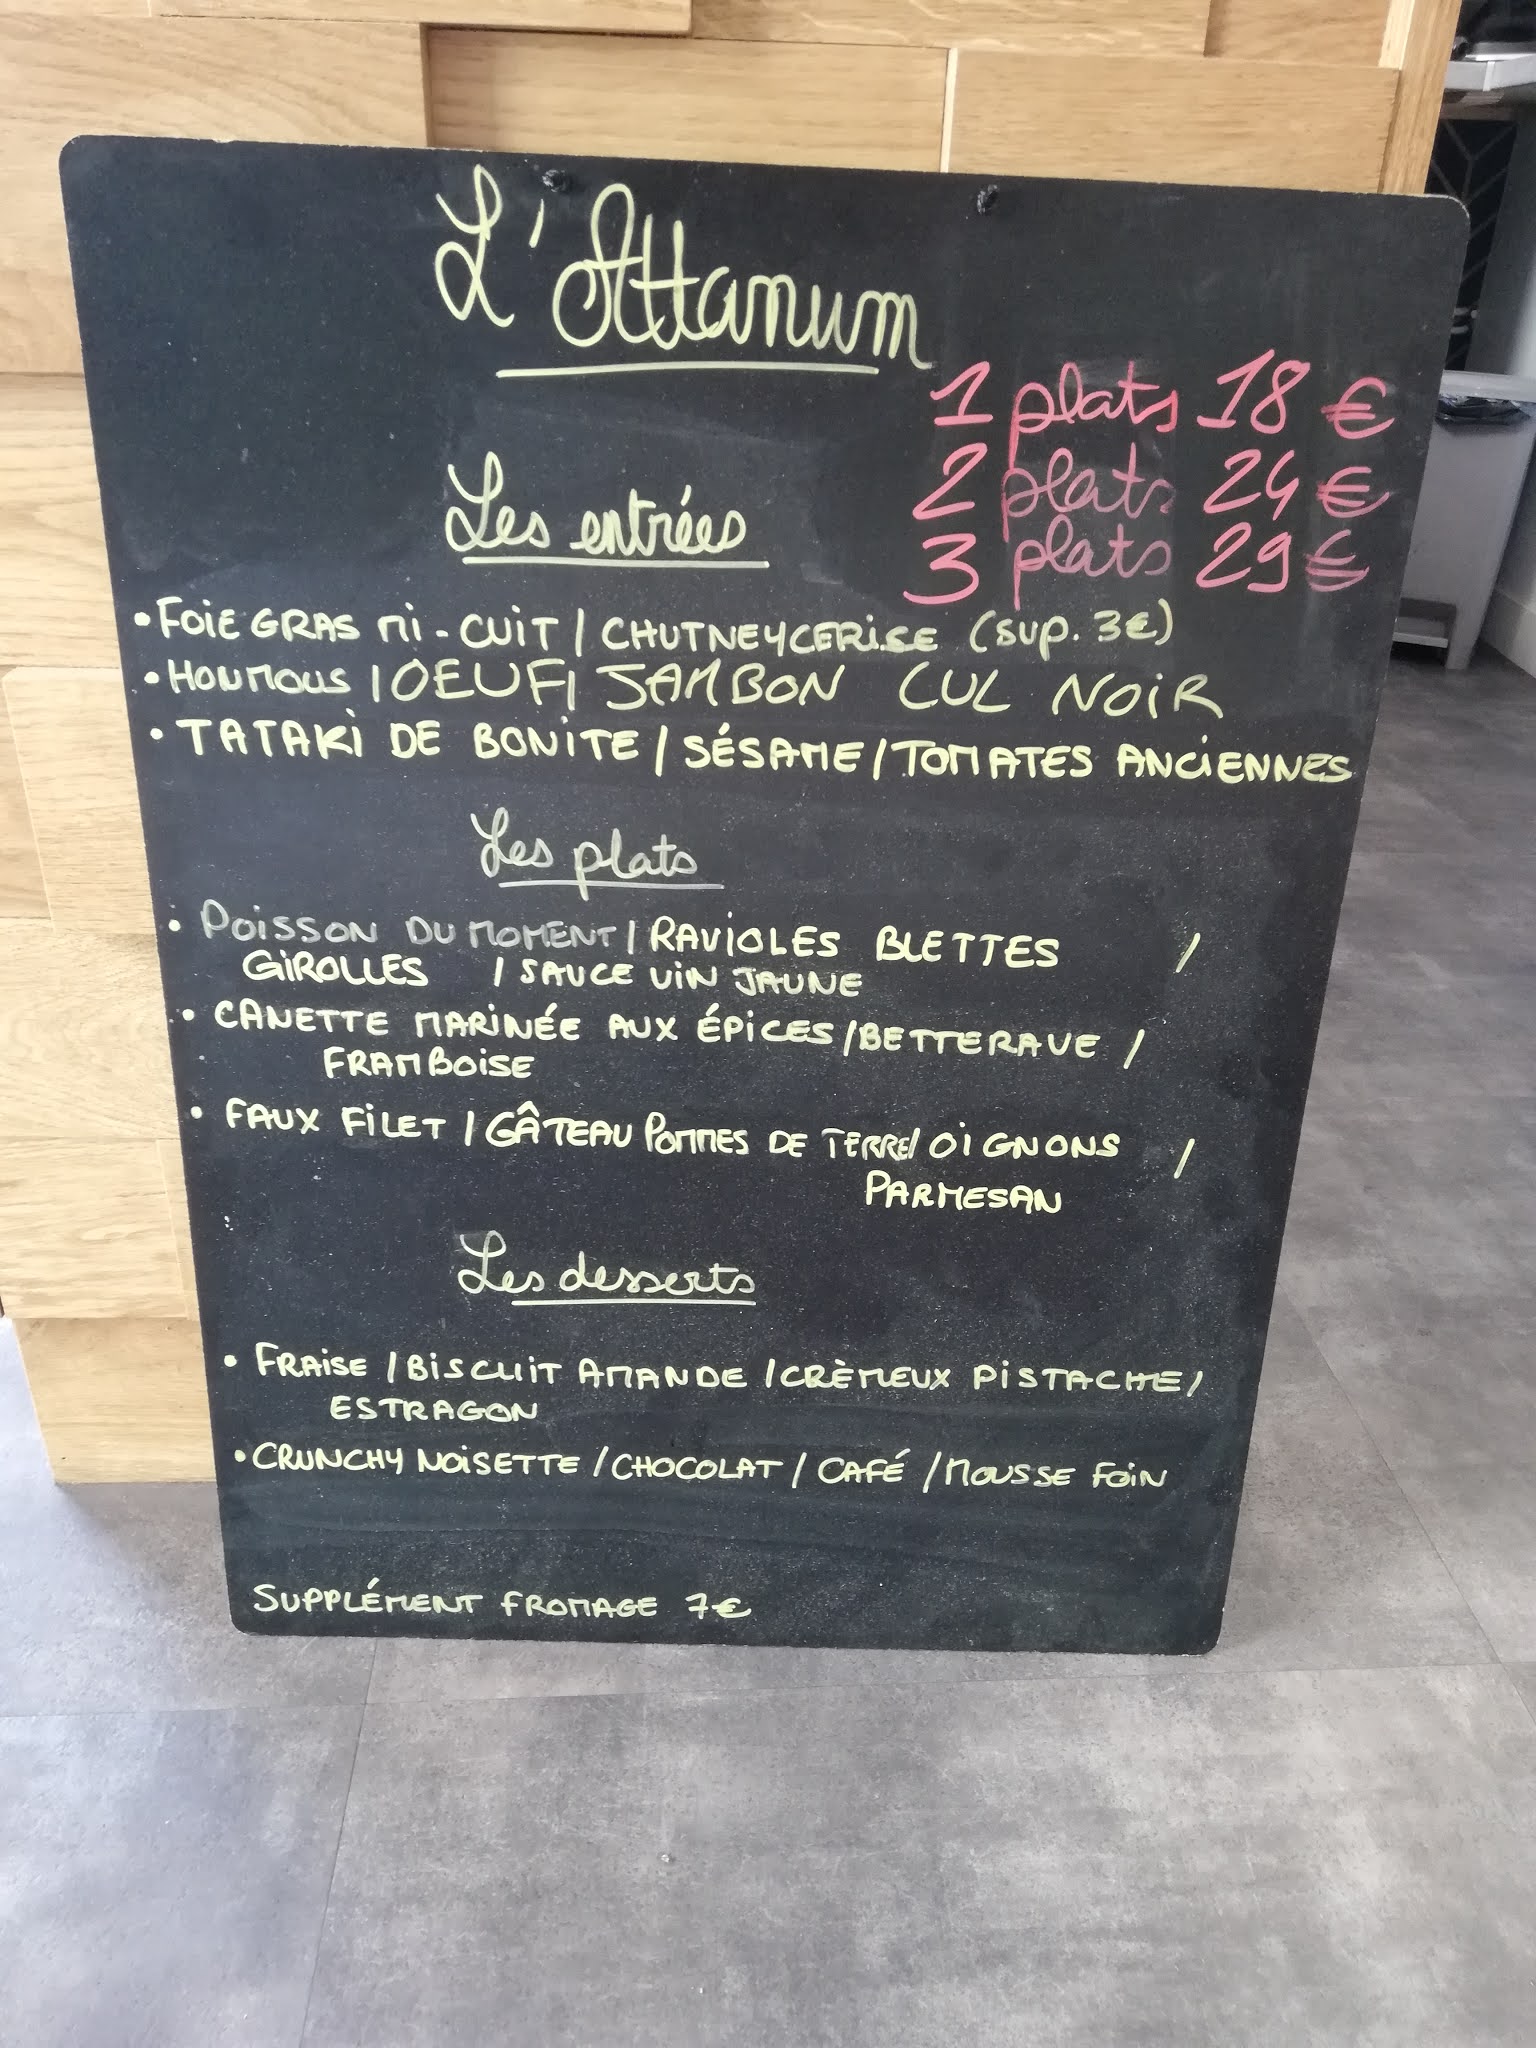 L'Attanum
1 plats 18 €
2 plats 24 €
3 plats 29 €
Les entrées
• FOIE GRAS MI-CUIT / CHUTNEY CERISE (sup. 3€)
• HOUMOUS / OEUF / JAMBON CUL NOIR
• TATAKI DE BONITE / SÉSAME / TOMATES ANCIENNES
Les plats
• POISSON DU MOMENT / RAVIOLES BLETTES /
GIROLLES / SAUCE VIN JAUNE
• CANETTE MARINÉE AUX ÉPICES / BETTERAVE /
FRAMBOISE
• FAUX FILET / GÂTEAU POMMES DE TERRE / OIGNONS /
PARMESAN
Les desserts
• FRAISE / BISCUIT AMANDE / CRÈMEUX PISTACHE /
ESTRAGON
• CRUNCHY NOISETTE / CHOCOLAT / CAFÉ / MOUSSE FOIN
SUPPLÉMENT FROMAGE 7€